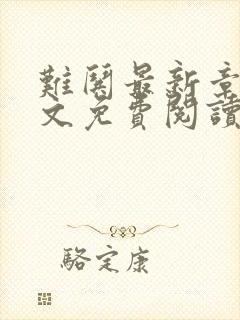 難鬪最新章
文免費閱讀
駱定康